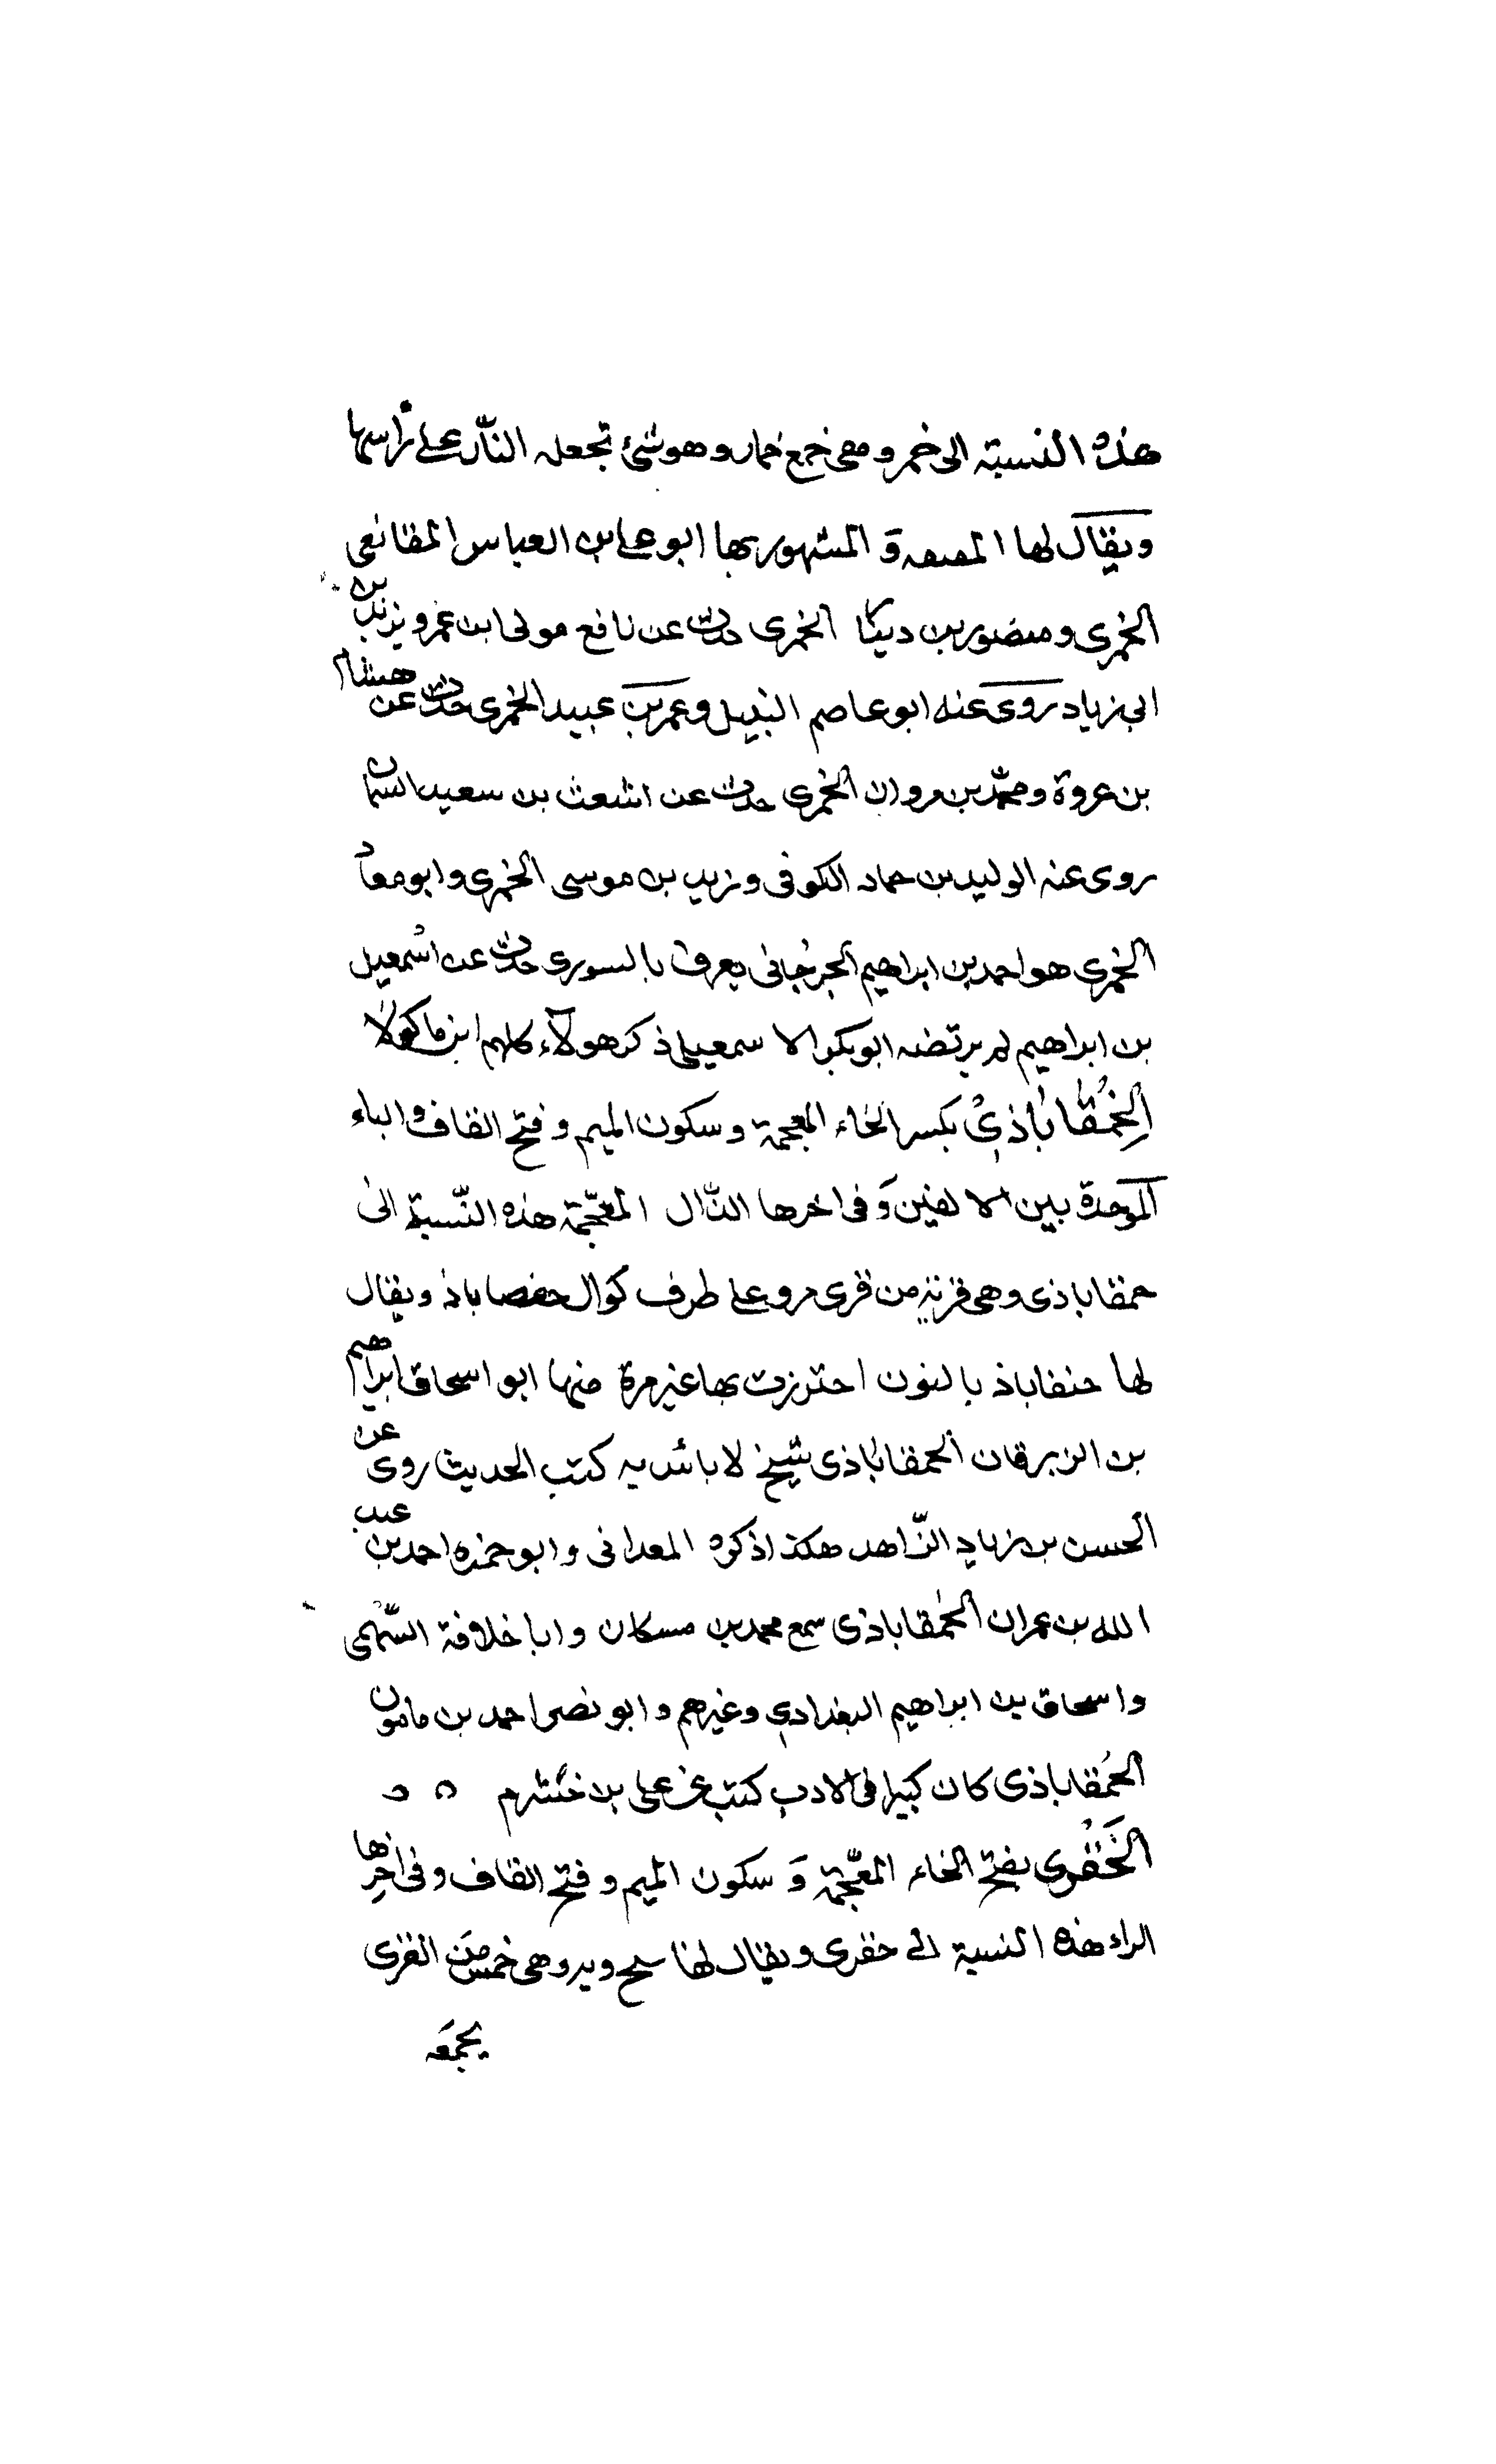 هذه النسبة الى خمر وهى جمع خمار وهو شئ تجعله النساء على راسها
ويقال لها المقنعة وَالمشهور بها ابو على بن العباس المقانعى
الخمرى ومنصور بن دينار الخمرى حدث عن نافع مولى ابن عمر ويزيد بن
ابى زياد روى عنه ابو عاصم النبيل وعمر بن عبيد الخمرى حدث عن هشام
بن عروة ومحمّد بن مروان الخمرى حدث عن اشعث بن سعيد السمان
روى عنه الوليد بن حماد الكوفى وزيد بن موسى الخمرى وابو معاد
الخمرى هو احمد بن ابراهيم الجرجانى يعرف بالسورى حدث عن اسمعيل
بن ابراهيم لم يرتضه ابو بكر الاسمعيلى ذكر هولاء كلهم ابن ماكولا
الخِمْقَابَاذِىْ بكسر الخاء المعجمة وسكون الميم وفتح القاف والباء
الموحدة بين الالفين وَفى اخرها الذّال المعجّمة هذه النّسبة الى
خمقاباذى وهى قرية من قرى مرو على طرف كوال حفصاباذ ويقال
لها خنفاباذ بالنون احترزت بها غير مرة منها ابو اسحاق ابراهيم
بن الزبرقان الخمقاباذى شيخ لا باس به كتب الحديث روى عن
الحسن بن زياد الزّاهد هكذا ذكره المعدانى وابو حمزه احمد بن عبد
الله بن عمران الخمقاباذى سمع محمد بن مسكان وابا خلافة السّهمى
واسحاق بن ابراهيم البغدادى وغيرهم وابو نصر احمد بن مامون
الخمقاباذى كان كبيرا فى الادب كتب عن على بن خشرم
الخَمْقَرى بفتح الخاء المعجّمة وَسكون الميم وفتح القاف وفى اخرها
الراء هذه النسبة الى خمقرى ويقال لها وهى خمس من القرى
يجمعَه